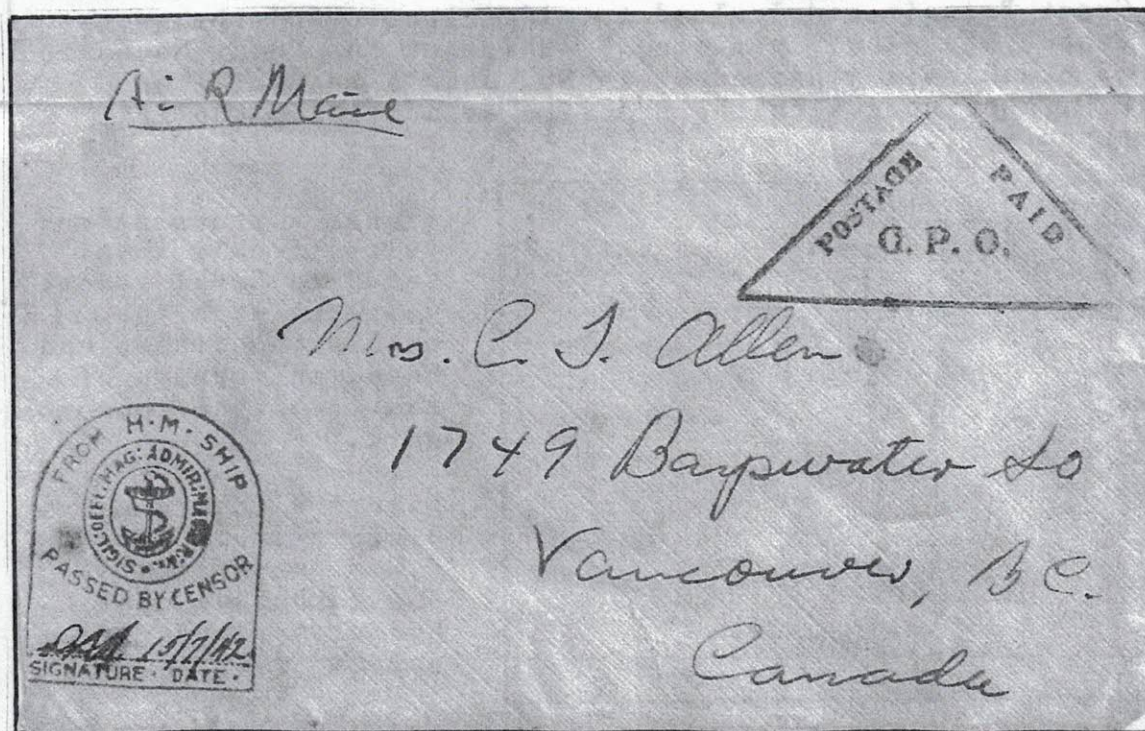 Air Mail
POSTAGE PAID
G. P. O.
Mrs. C. J. Allen
1749 Bayswater So
Vancouver, BC.
Canada
FROM H·M·SHIP
SIGIL: OFFI: MAG: ADMIR:
PASSED BY CENSOR
15/7/42
SIGNATURE · DATE ·